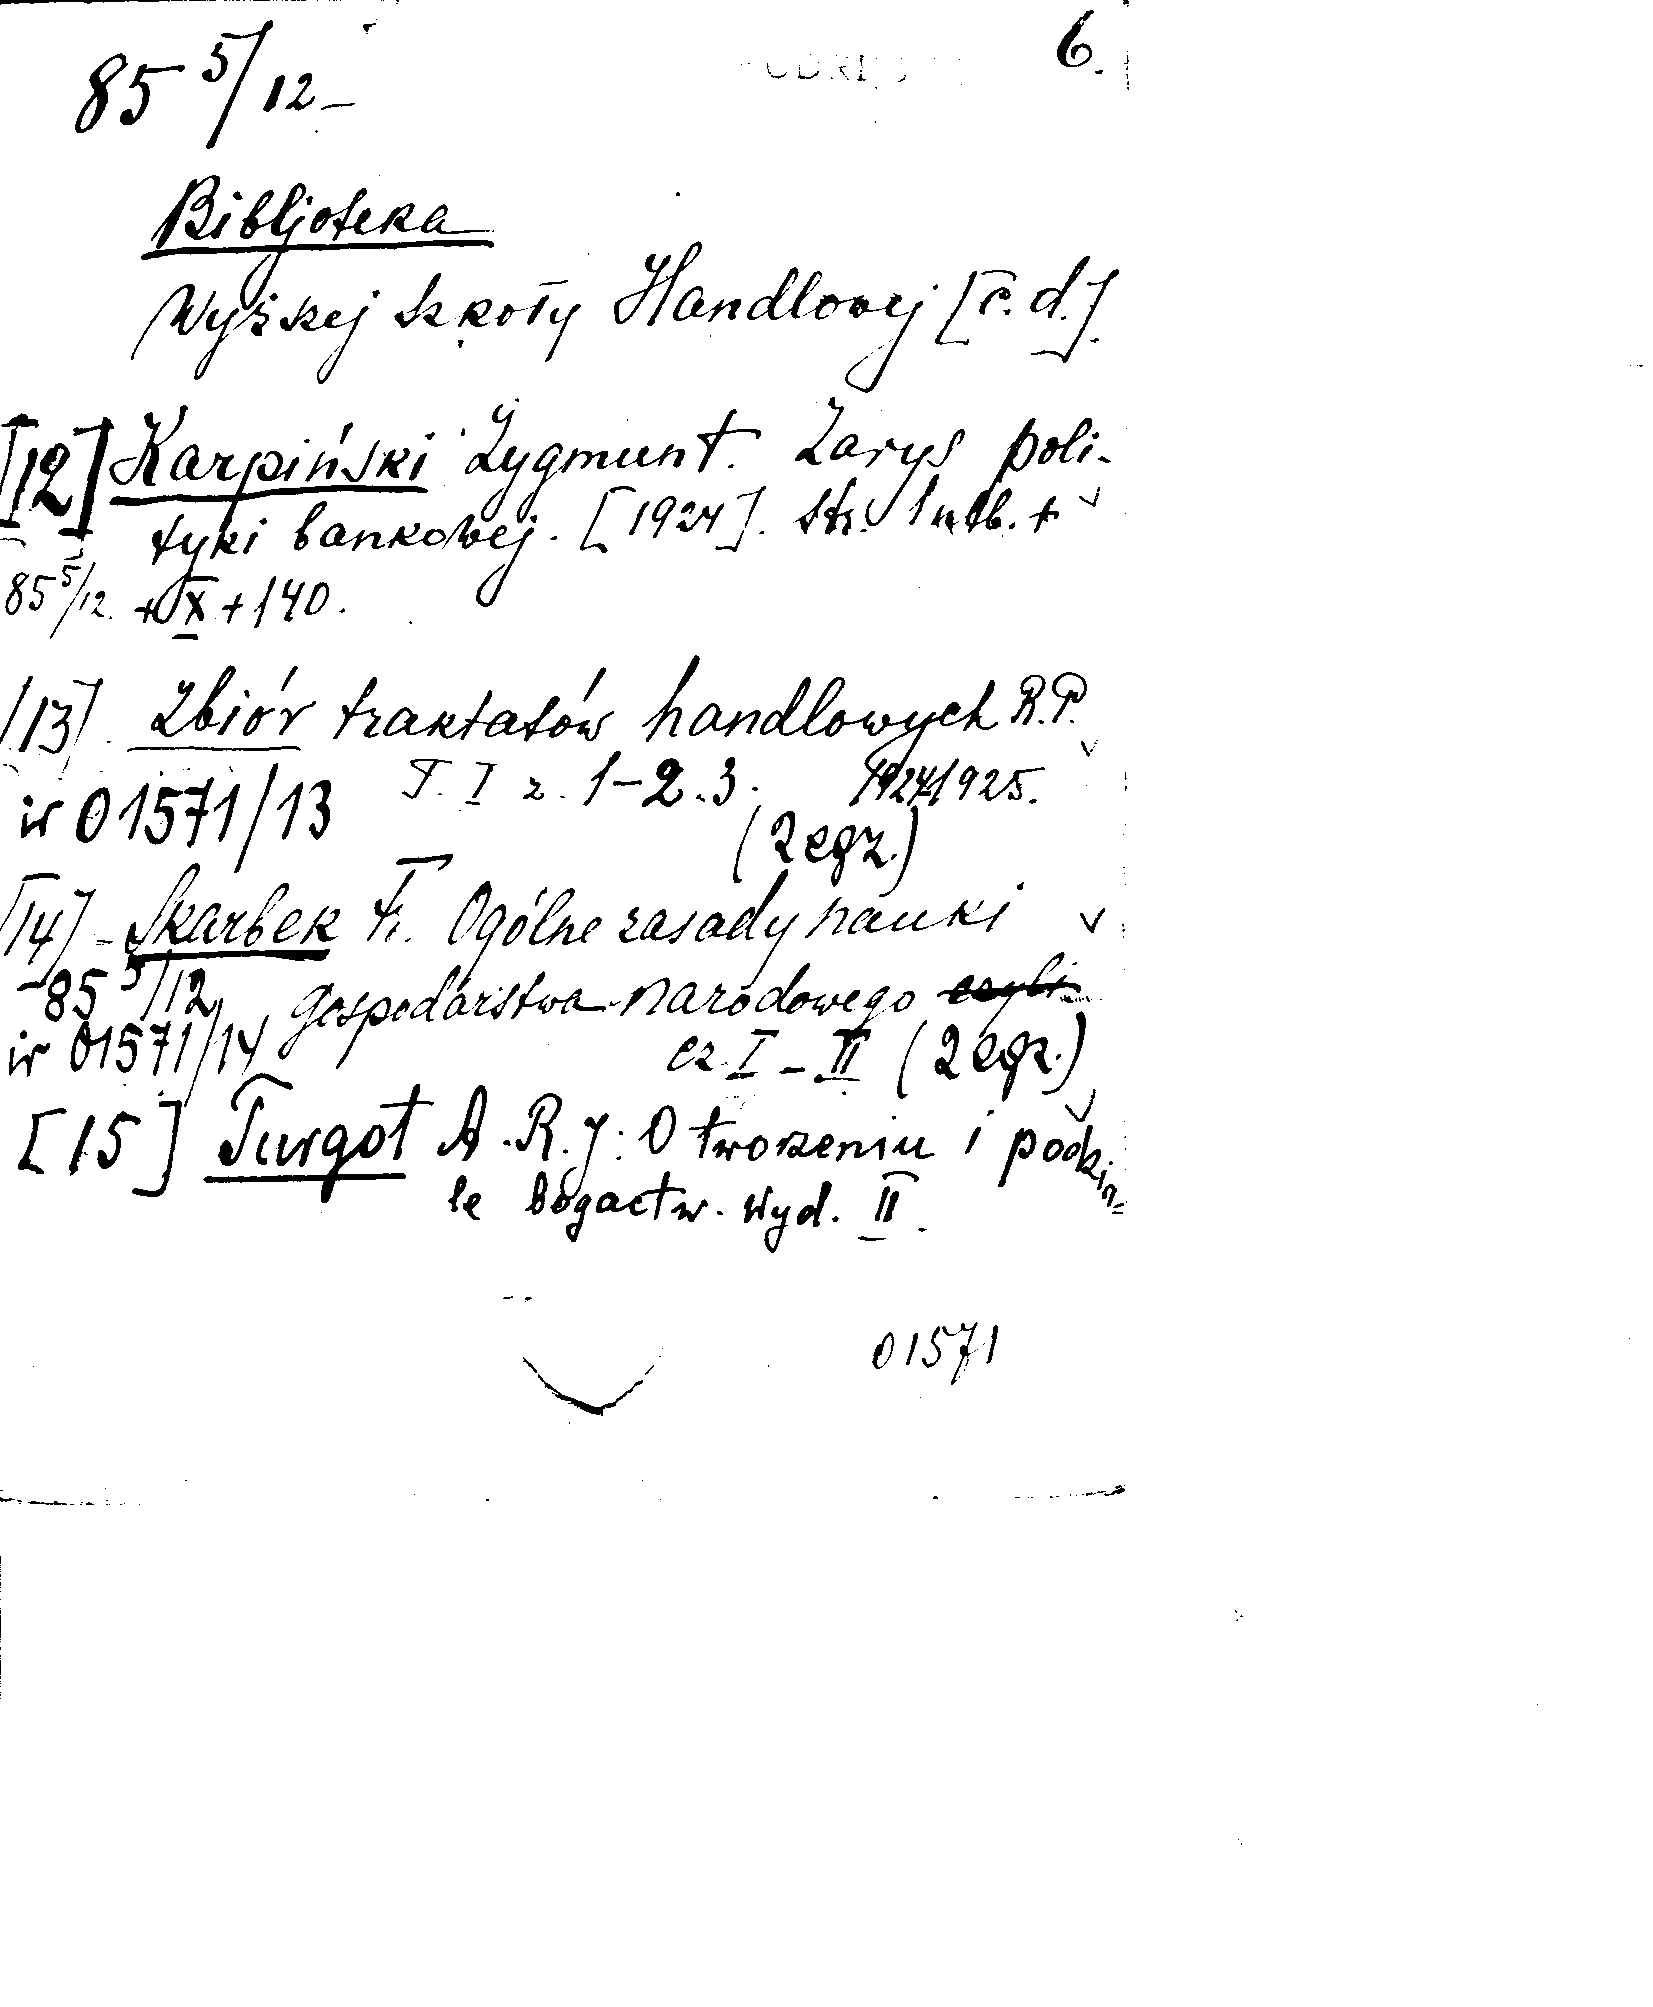 85 5/12 6.
Bibljoteka
Wyższej Szkoły Handlowej [c.d.].
[12] Karpiński Zygmunt. Zarys poli-
tyki bankowej. [1924]. Str. 1 ntb. +
85 5/12 + IX + 140.
[13] Zbiór traktatów handlowych R.P.
ir 01571/13 T. I z. 1-2.3. 1924/1925.
(2 egz.)
[14] - Skarbek Fr. Ogólne zasady nauki
-85 5/12 gospodarstwa narodowego czyli
ir 01571/14 cz I - II (2 egz.)
[15] Turgot A.R.J: O tworzeniu i podzia-
le bogactw. Wyd. II.
01571